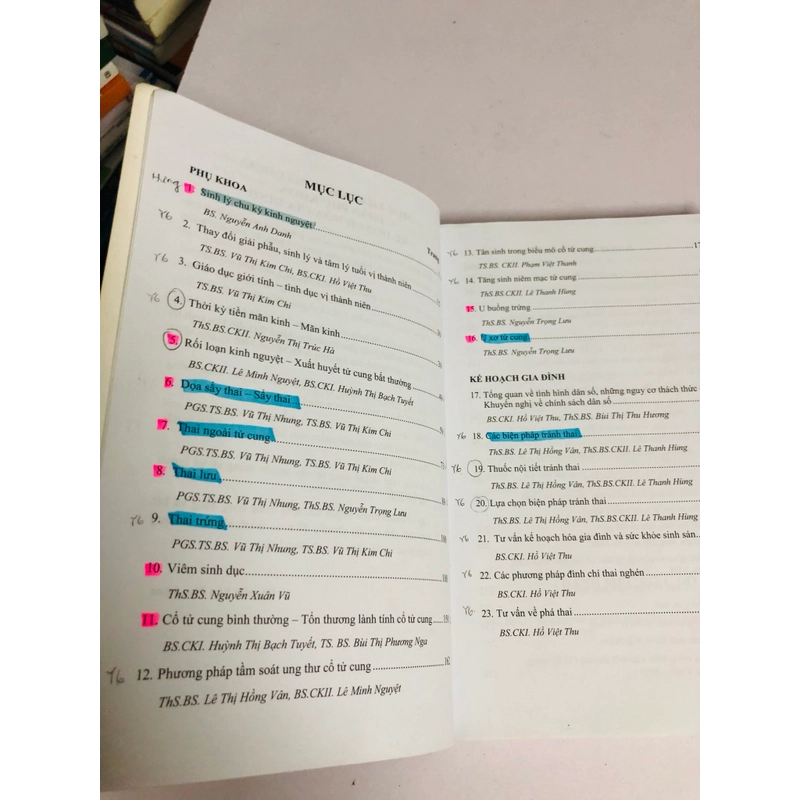 PHỤ KHOA
MỤC LỤC
Trang
1. Sinh lý chu kỳ kinh nguyệt
BS. Nguyễn Anh Danh
Y6 2. Thay đổi giải phẫu, sinh lý và tâm lý tuổi vị thành niên
TS.BS. Vũ Thị Kim Chi, BS.CKI. Hồ Việt Thu
Y6 3. Giáo dục giới tính – tình dục vị thành niên
TS.BS. Vũ Thị Kim Chi
Y6 4. Thời kỳ tiền mãn kinh – Mãn kinh
ThS.BS.CKII. Nguyễn Thị Trúc Hà
5. Rối loạn kinh nguyệt – Xuất huyết tử cung bất thường
BS.CKII. Lê Minh Nguyệt, BS.CKI. Huỳnh Thị Bạch Tuyết
6. Dọa sẩy thai – Sẩy thai
PGS.TS.BS. Vũ Thị Nhung, TS.BS. Vũ Thị Kim Chi
7. Thai ngoài tử cung
PGS.TS.BS. Vũ Thị Nhung, TS.BS. Vũ Thị Kim Chi
8. Thai lưu
PGS.TS.BS. Vũ Thị Nhung, ThS.BS. Nguyễn Trọng Lưu
Y6 9. Thai trứng
PGS.TS.BS. Vũ Thị Nhung, TS.BS. Vũ Thị Kim Chi
10. Viêm sinh dục
ThS.BS. Nguyễn Xuân Vũ
11. Cổ tử cung bình thường – Tổn thương lành tính cổ tử cung
BS.CKI. Huỳnh Thị Bạch Tuyết, TS. BS. Bùi Thị Phương Nga
Y6 12. Phương pháp tầm soát ung thư cổ tử cung
ThS.BS. Lê Thị Hồng Vân, BS.CKII. Lê Minh Nguyệt
Y6 13. Tân sinh trong biểu mô cổ tử cung
TS.BS. CKII. Phạm Việt Thanh
Y6 14. Tăng sinh niêm mạc tử cung
ThS.BS.CKII. Lê Thanh Hùng
15. U buồng trứng
ThS.BS. Nguyễn Trọng Lưu
16. U xơ tử cung
ThS.BS. Nguyễn Trọng Lưu
KẾ HOẠCH GIA ĐÌNH
17. Tổng quan về tình hình dân số, những nguy cơ thách thức
Khuyến nghị về chính sách dân số
BS.CKI. Hồ Việt Thu, ThS.BS. Bùi Thị Thu Hương
Y6 18. Các biện pháp tránh thai
ThS.BS. Lê Thị Hồng Vân, ThS.BS.CKII. Lê Thanh Hùng
Y6 19. Thuốc nội tiết tránh thai
ThS.BS. Lê Thị Hồng Vân, ThS.BS.CKII. Lê Thanh Hùng
Y6 20. Lựa chọn biện pháp tránh thai
ThS.BS. Lê Thị Hồng Vân, ThS.BS.CKII. Lê Thanh Hùng
Y6 21. Tư vấn kế hoạch hóa gia đình và sức khỏe sinh sản
BS.CKI. Hồ Việt Thu
Y6 22. Các phương pháp đình chỉ thai nghén
BS.CKI. Hồ Việt Thu
Y6 23. Tư vấn về phá thai
BS.CKI. Hồ Việt Thu